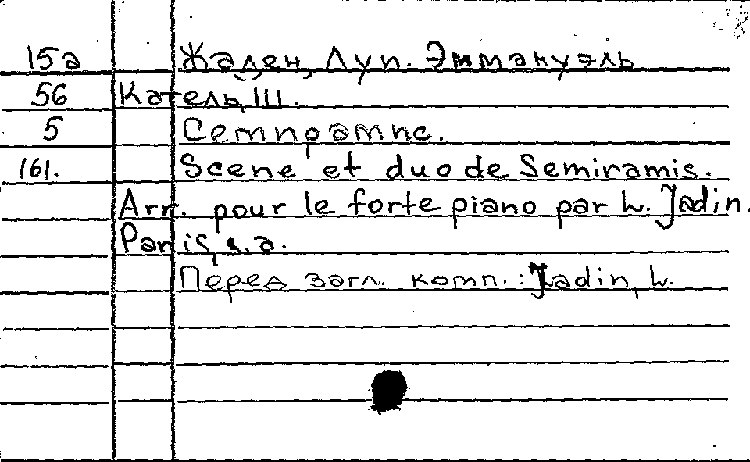 15а Жаден, Луп. Эммануэль
56 Катель, Ш.
5 Семирамис.
161. Scene et duo de Semiramis.
Arr. pour le forte piano par L. Jadin.
Paris, s.a.
Перед загл. комп.: Jadin, L.